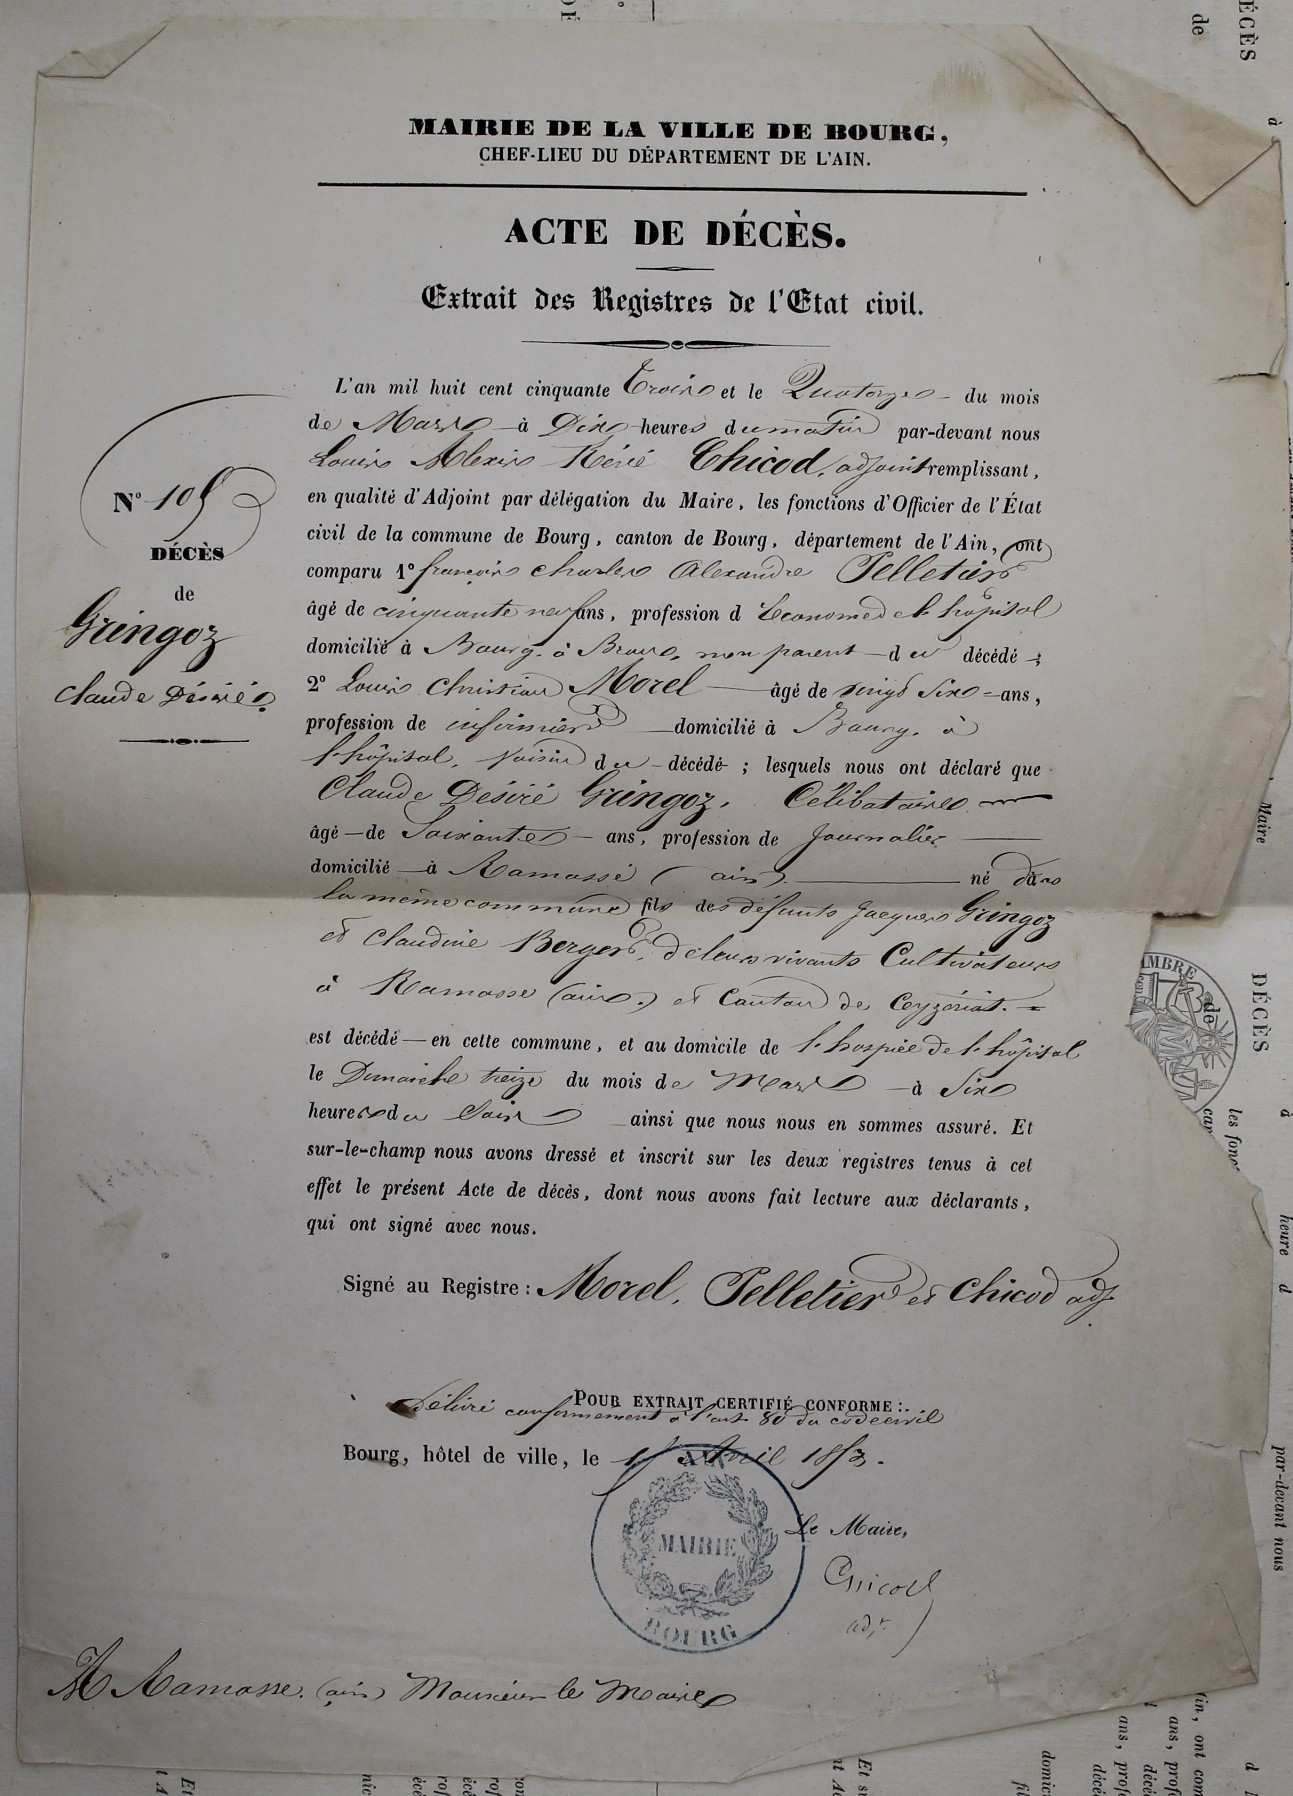 MAIRIE DE LA VILLE DE BOURG,
CHEF-LIEU DU DÉPARTEMENT DE L'AIN.
ACTE DE DÉCÈS.
Extrait des Registres de l'Etat civil.
N° 105
DÉCÈS
de
Gringoz
Claude Désiré
L'an mil huit cent cinquante Trois et le Quatorze du mois
de Mars à Dix heures du matin par-devant nous
Louis Alexis Réné Chicod, adjoint remplissant,
en qualité d'Adjoint par délégation du Maire, les fonctions d'Officier de l'État
civil de la commune de Bourg, canton de Bourg, département de l'Ain, ont
comparu 1° françois charles Alexandre Pelletier
âgé de cinquante neuf ans, profession d Econome de l'hôpital
domicilié à Bourg, à Brou, non parent du décédé;
2° Louis Christian Morel âgé de vingt Six ans,
profession de infirmier domicilié à Bourg, à
l'hôpital, Voisin du décédé; lesquels nous ont déclaré que
Claude Désiré Gringoz, Célibataire
âgé de Soixante ans, profession de journalier
domicilié à Ramasse (ain) né dans
la même commune fils des défunts Jacques Gringoz
et Claudine Berger, de leurs vivants Cultivateurs
à Ramasse (ain.) et Canton de Ceyzériat.
est décédé en cette commune, et au domicile de l'hospice de l'hôpital
le Dimanche treize du mois de Mars à Six
heures du Soir ainsi que nous nous en sommes assuré. Et
sur-le-champ nous avons dressé et inscrit sur les deux registres tenus à cet
effet le présent Acte de décès, dont nous avons fait lecture aux déclarants,
qui ont signé avec nous.
Signé au Registre: Morel, Pelletier et Chicod adj.
POUR EXTRAIT CERTIFIÉ CONFORME:
Délivré conformément à l'art. 80 du code civil
Bourg, hôtel de ville, le 15 Avril 1853.
AIN
MAIRIE
BOURG
Le Maire,
Chicod
adjt
A Ramasse (ain) Monsieur le Maire
DÉCÈS
de
à
Maire
DÉCÈS
de
à
les fonc
heure d
par-devant nous
in, ont com
ans, prof
décé
domici
fil
Et su